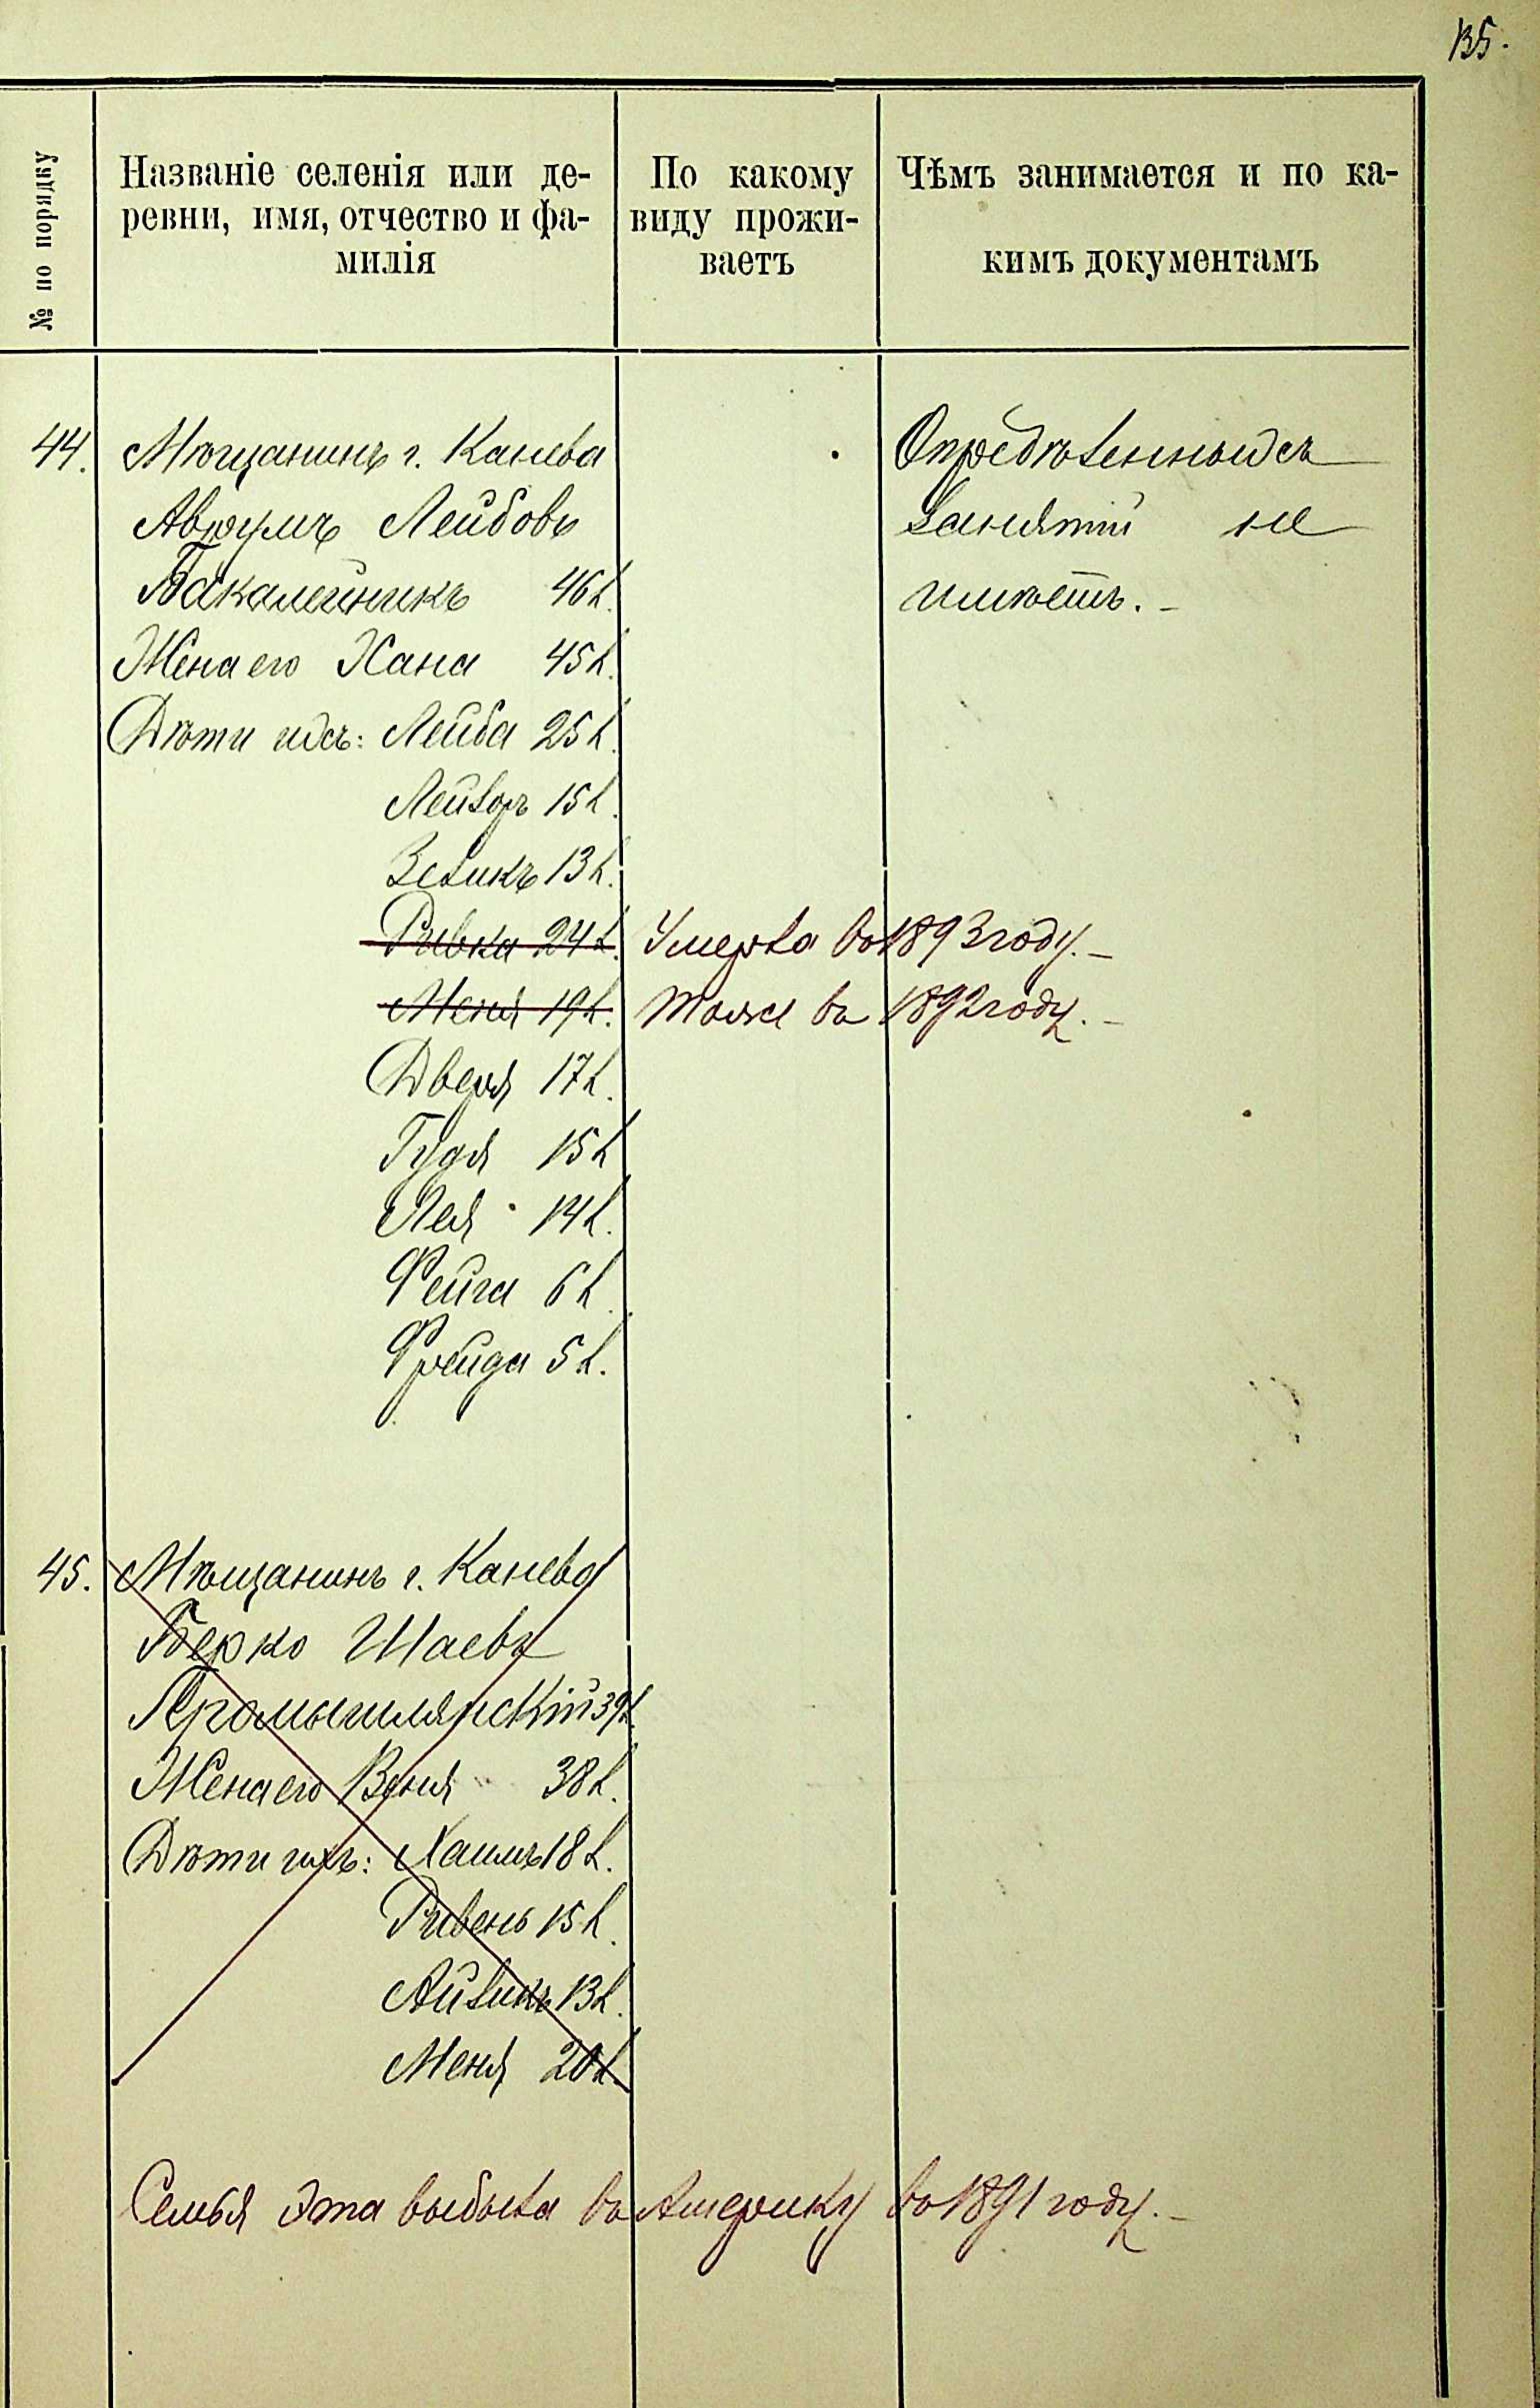 135.
№ по порядку
Названіе селенія или де-
ревни, имя, отчество и фа-
милія
По какому
виду прожи-
ваетъ
Чѣмъ занимается и по ка-
кимъ документамъ
44. Мѣщанинъ г. Канева
Аврумъ Лейбовъ
Бакалейникъ 46 л.
Жена его Хана 45 л.
Дѣти ихъ: Лейба 25 л.
Лейзоръ 15 л.
Зеликъ 13 л.
Ривка 24 л. Умерла въ 1893 году. –
Меня 19 л. Тоже въ 1892 году. –
Двера 17 л.
15 л.
Лея 14 л.
Фейга 6 л.
Фрейда 5 л.
Опредѣленныхъ
занятій не
имѣетъ. –
45. Мѣщанинъ г. Канева
Берко Шаевъ
39 л.
Жена его 38 л.
Дѣти ихъ: Хаимъ 18 л.
Рувень 15 л.
Айзикъ 13 л.
Меня 20 л.
Семья эта выбыла въ Америку въ 1891 году. –